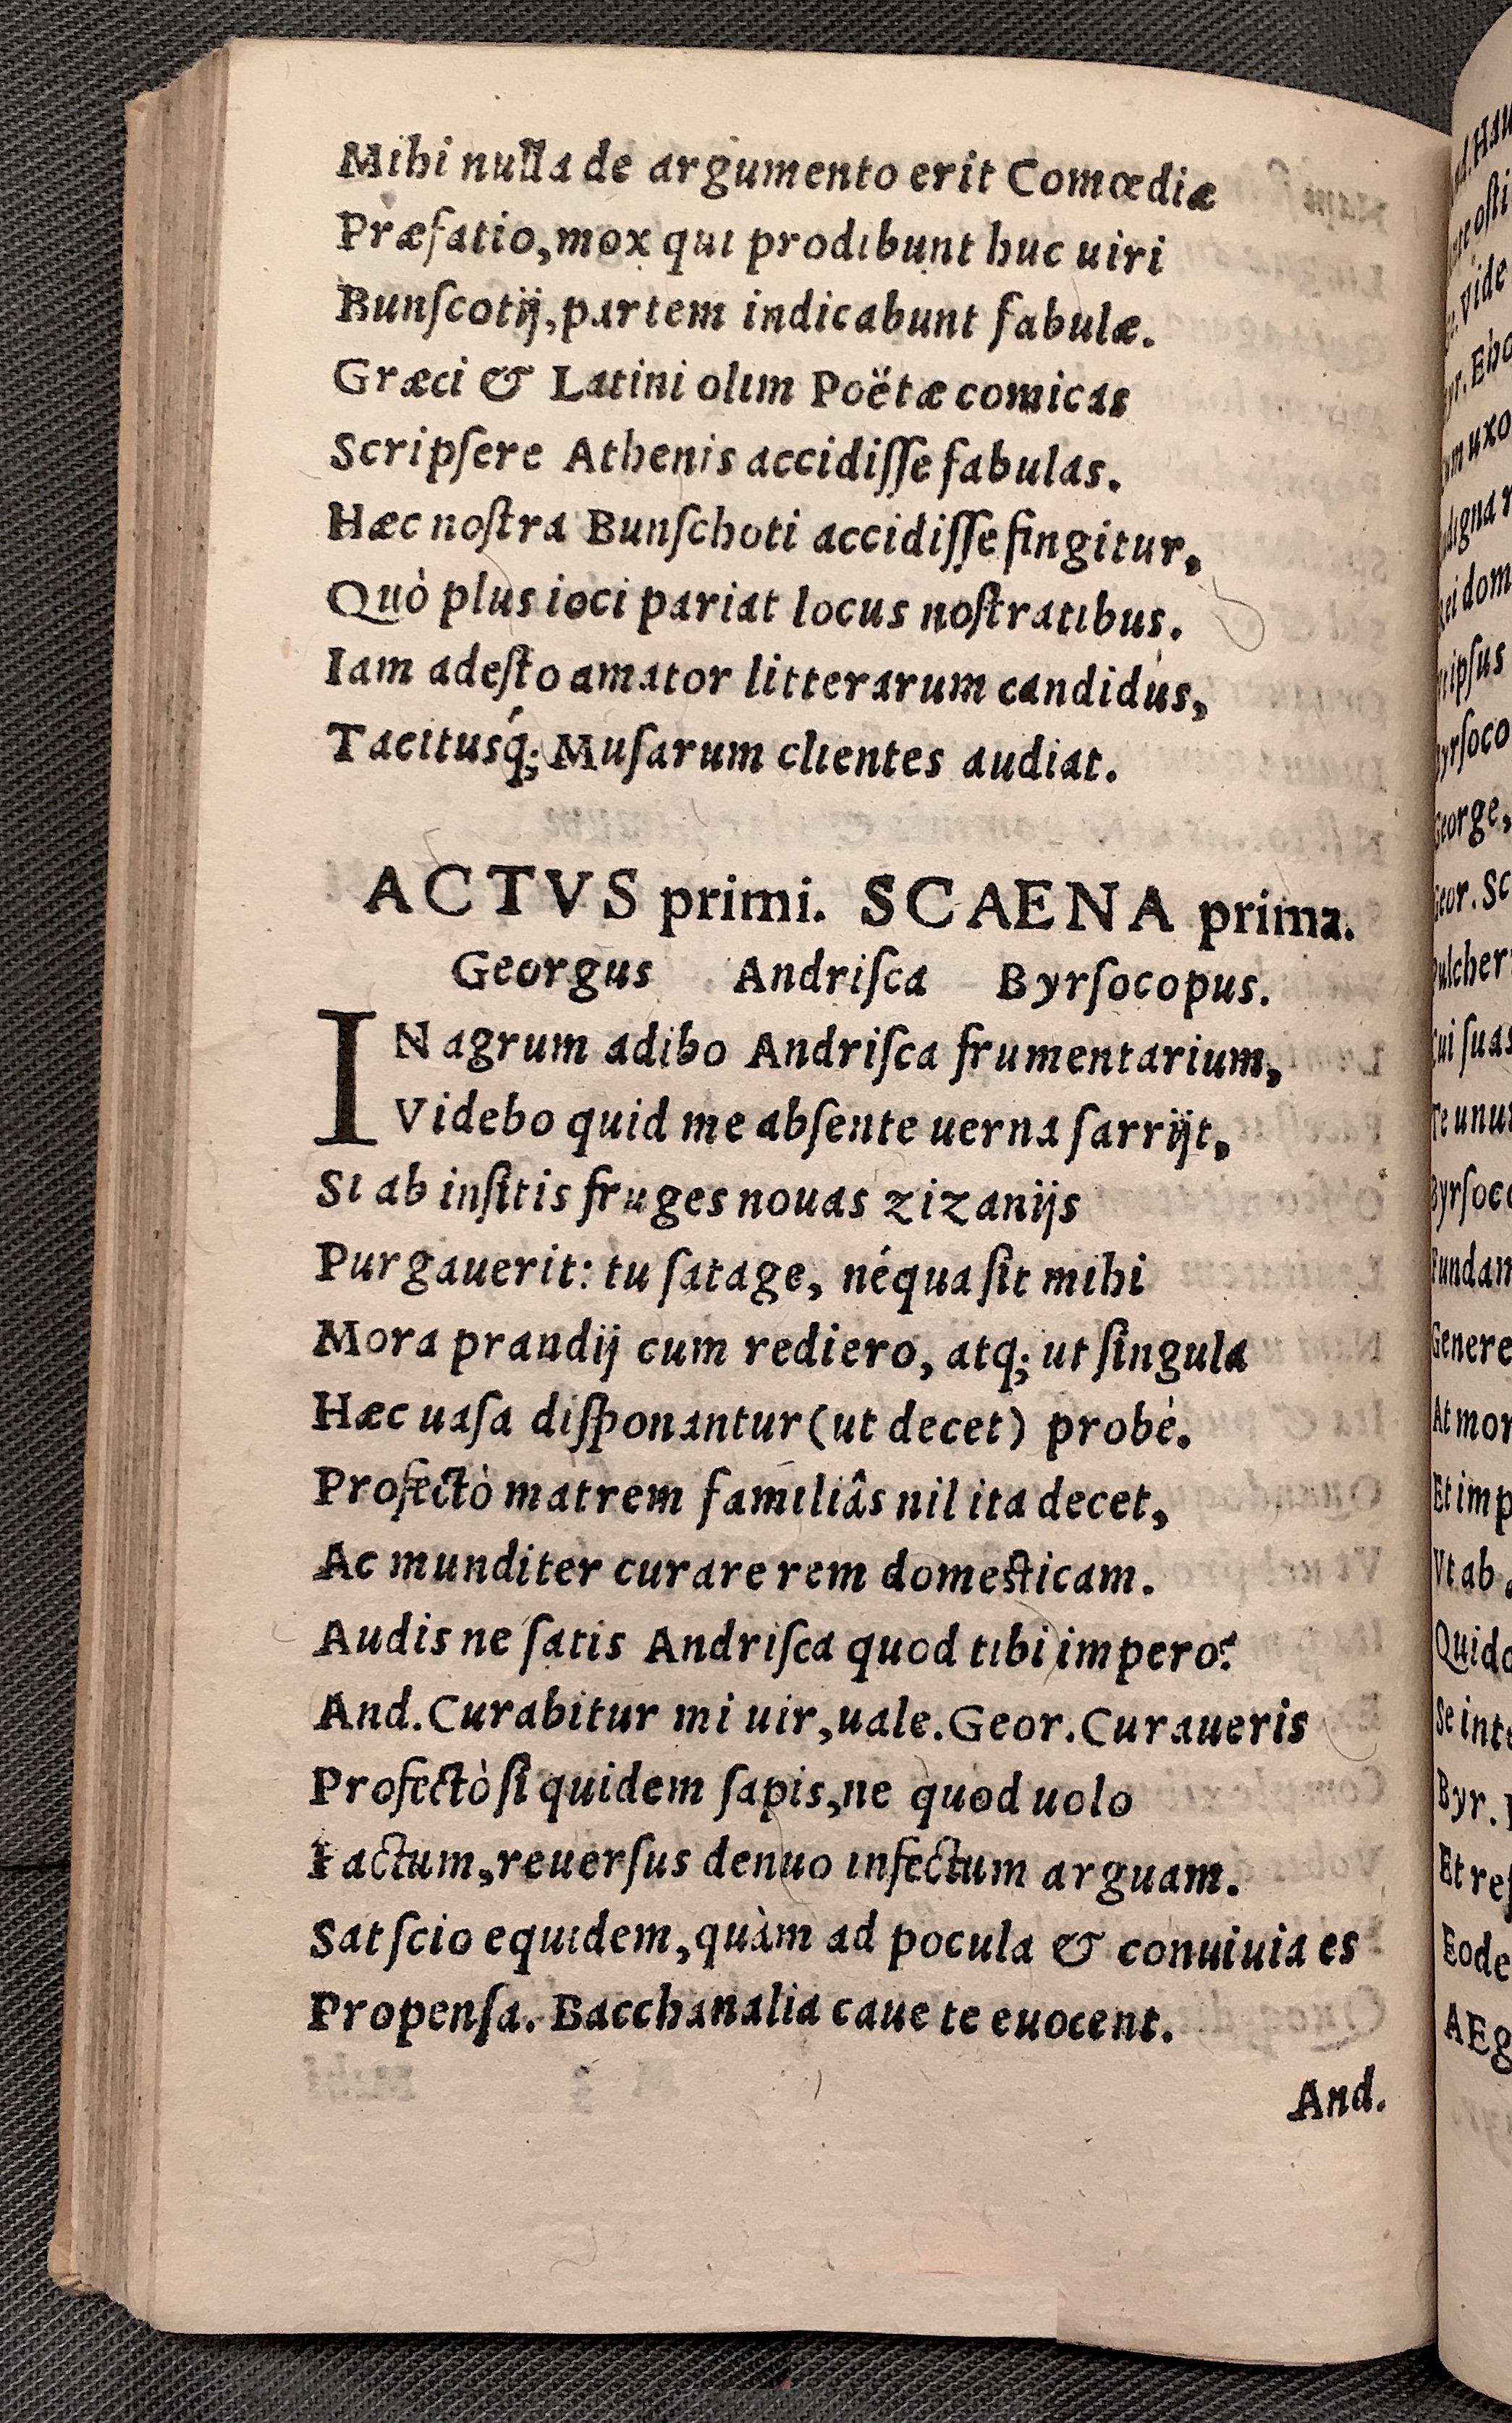 Mihi nulla de argumento erit Comœdiæ
Præfatio, mox qui prodibunt huc uiri
Bunſcotij, partem indicabunt fabulæ.
Græci & Latini olim Poëtæ comicas
Scripſere Athenis accidiſſe fabulas.
Hæc noſtra Bunſchoti accidiſſe fingitur,
Quò plus ioci pariat locus noſtratibus.
Iam adeſto amator litterarum candidus,
Tacitusq́; Muſarum clientes audiat.
ACTVS primi. SCAENA prima.
Georgus Andriſca Byrſocopus.
IN agrum adibo Andriſca frumentarium,
Videbo quid me abſente uerna ſarrijt,
Si ab inſitis fruges nouas zizanijs
Purgauerit: tu ſatage, néqua ſit mihi
Mora prandij cum rediero, atq; ut ſingula
Hæc uaſa diſponantur (ut decet) probè.
Profectò matrem familiâs nil ita decet,
Ac munditer curare rem domeſticam.
Audis ne ſatis Andriſca quod tibi impero?
And. Curabitur mi uir, uale. Geor. Curaueris
Profectò ſi quidem ſapis, ne quod uolo
Factum, reuerſus denuo infectum arguam.
Sat ſcio equidem, quàm ad pocula & conuiuia es
Propenſa. Bacchanalia caue te euocent.
And.